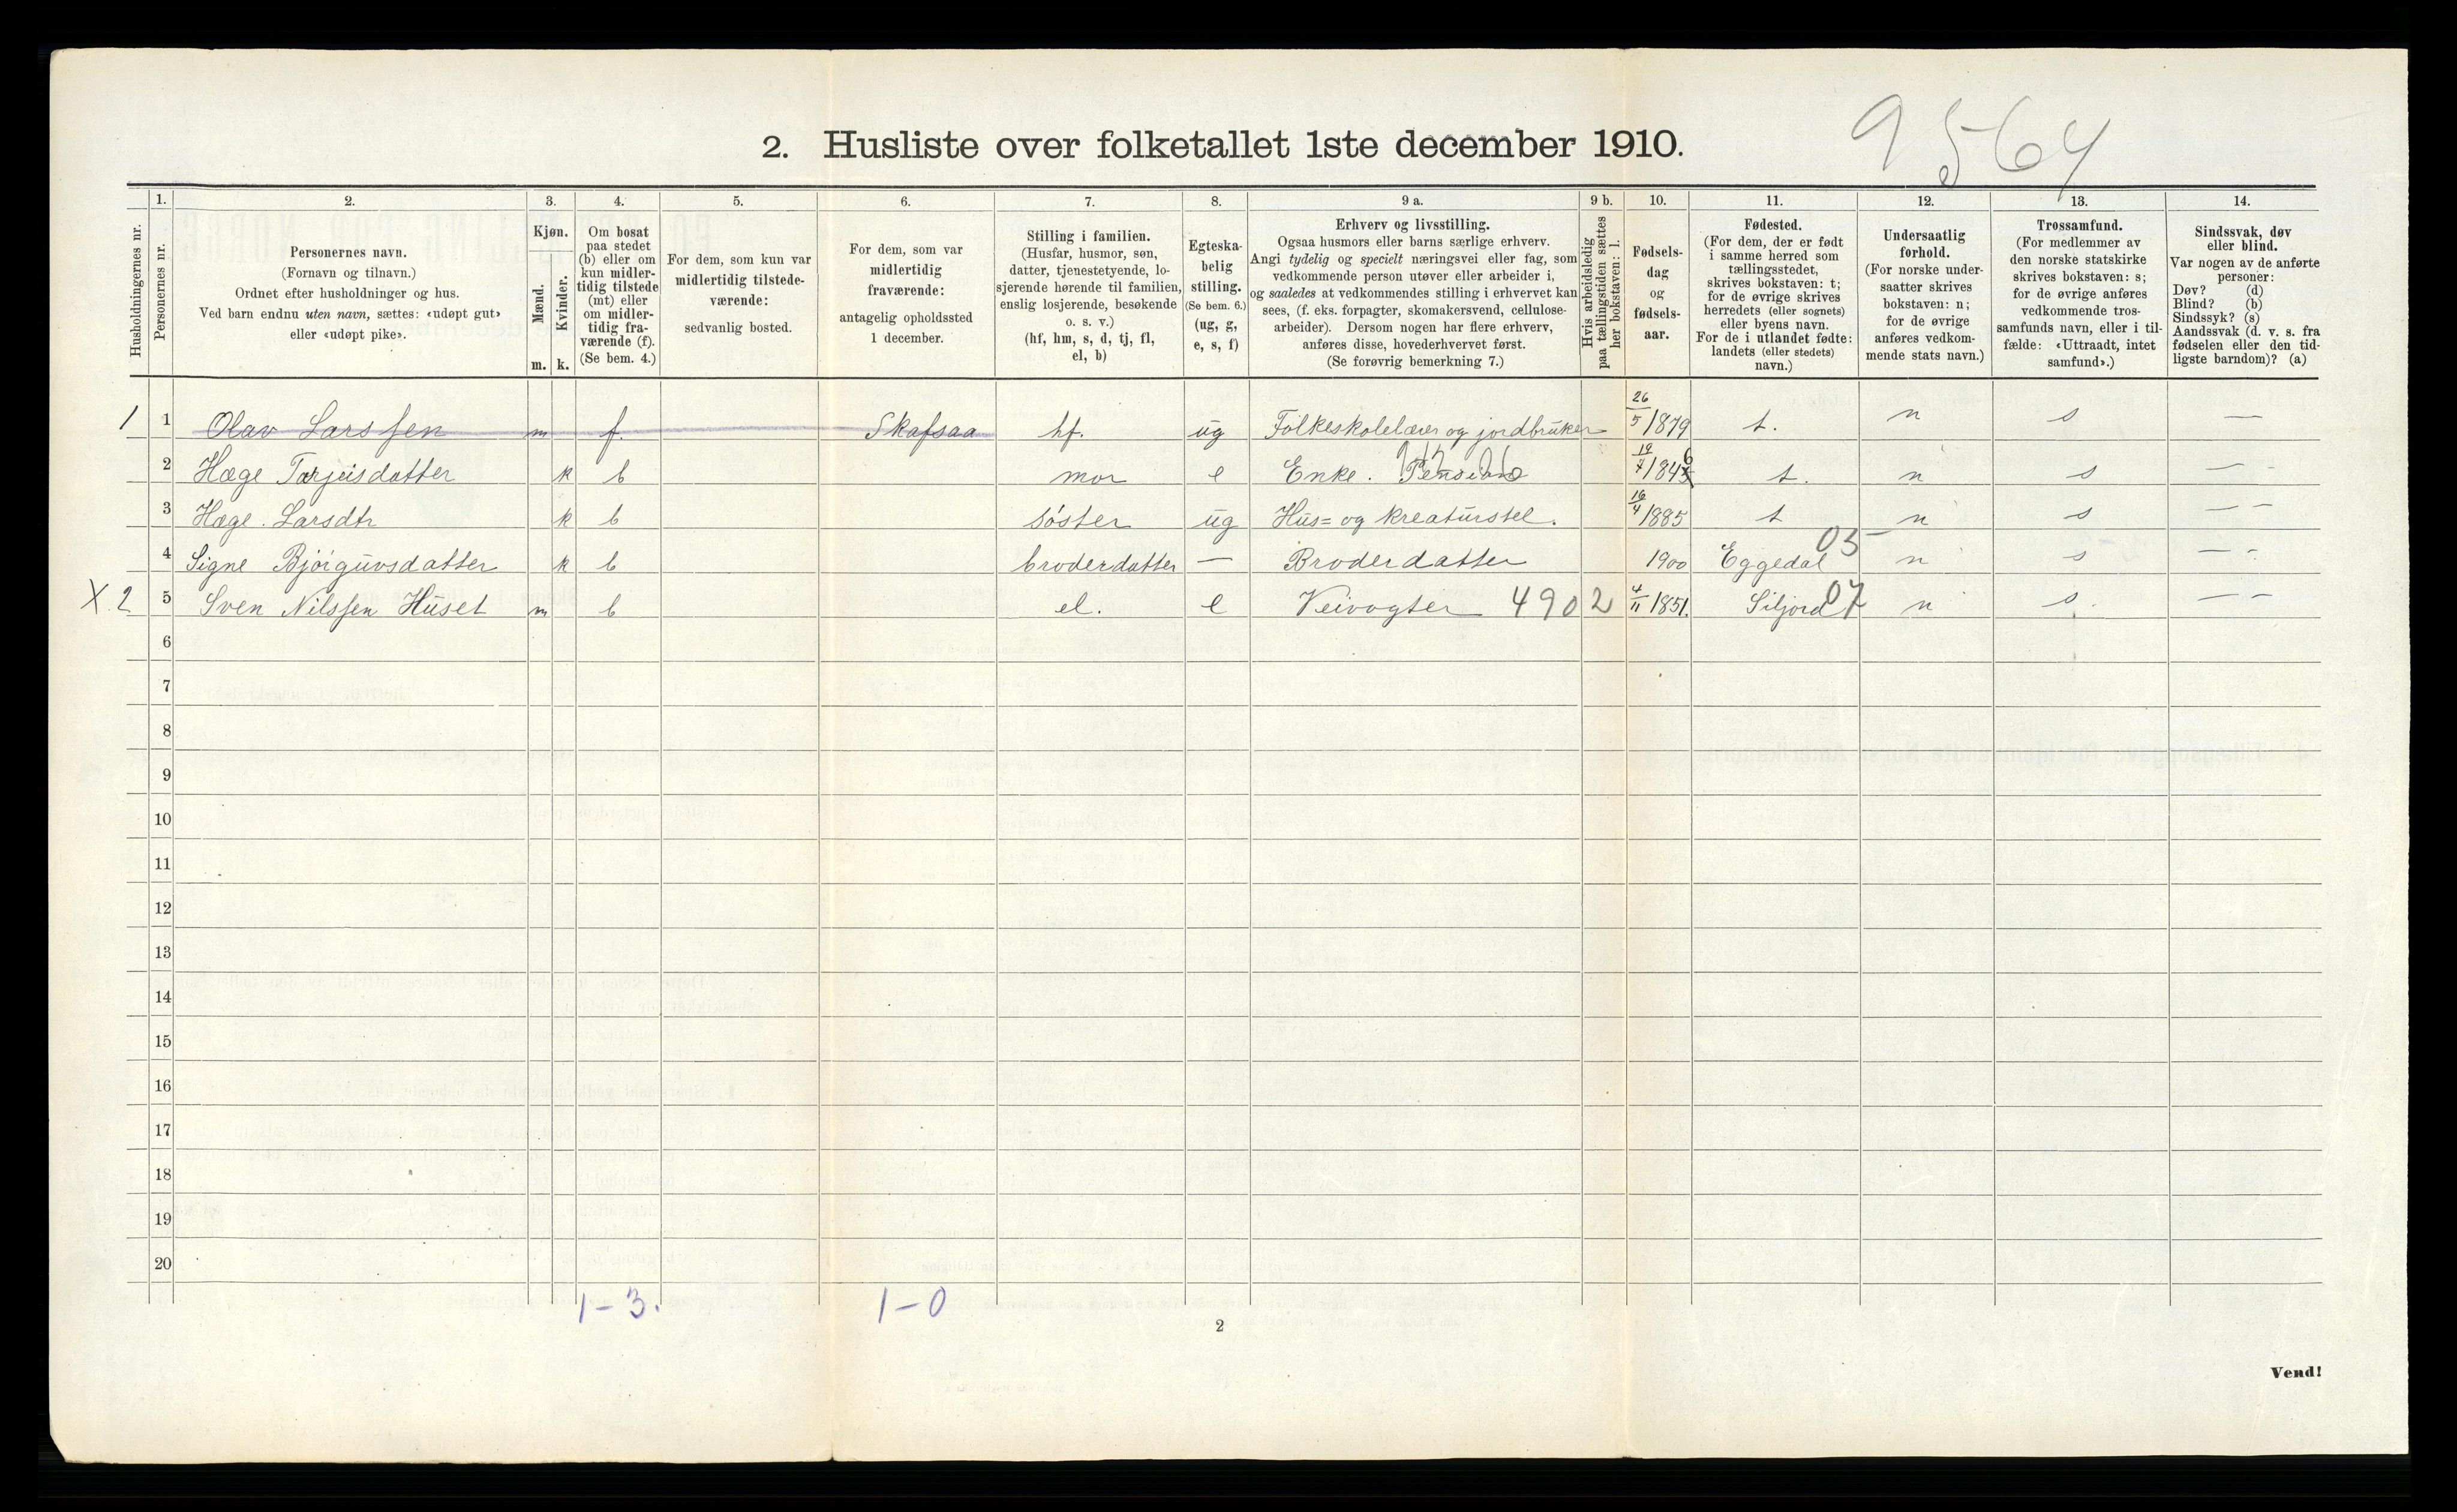 9 564
2. Husliste over folketallet 1ste december 1910.
Husholdningernes nr.
1. Personernes nr.
2. Personernes navn. (Fornavn og tilnavn.) Ordnet efter husholdninger og hus. Ved barn endnu uten navn, sættes: «udøpt gut» eller «udøpt pike».
3. Kjøn. Mænd. m. Kvinder. k.
4. Om bosat paa stedet (b) eller om kun midler-tidig tilstede (mt) eller om midler-tidig fra-værende (f). (Se bem. 4.)
5. For dem, som kun var midlertidig tilstede-værende: sedvanlig bosted.
6. For dem, som var midlertidig fraværende: antagelig opholdssted 1 december.
7. Stilling i familien. (Husfar, husmor, søn, datter, tjenestetyende, lo-sjerende hørende til familien, enslig losjerende, besøkende o. s. v.) (hf, hm, s, d, tj, fl, el, b)
8. Egteska-belig stilling. (Se bem. 6.) (ug, g, e, s, f)
9 a. Erhverv og livsstilling. Ogsaa husmors eller barns særlige erhverv. Angi tydelig og specielt næringsvei eller fag, som vedkommende person utøver eller arbeider i, og saaledes at vedkommendes stilling i erhvervet kan sees, (f. eks. forpagter, skomakersvend, cellulose-arbeider). Dersom nogen har flere erhverv, anføres disse, hovederhvervet først. (Se forøvrig bemerkning 7.)
9 b. Hvis arbeidsledig paa tællingstiden sættes her bokstaven: l.
10. Fødsels-dag og fødsels-aar.
11. Fødested. (For dem, der er født i samme herred som tællingsstedet, skrives bokstaven: t; for de øvrige skrives herredets (eller sognets) eller byens navn. For de i utlandet fødte: landets (eller stedets) navn.)
12. Undersaatlig forhold. (For norske under-saatter skrives bokstaven: n; for de øvrige anføres vedkom-mende stats navn.)
13. Trossamfund. (For medlemmer av den norske statskirke skrives bokstaven: s; for de øvrige anføres vedkommende tros-samfunds navn, eller i til-fælde: «Uttraadt, intet samfund».)
14. Sindssvak, døv eller blind. Var nogen av de anførte personer: Døv? (d) Blind? (b) Sindssyk? (s) Aandssvak (d. v. s. fra fødselen eller den tid-ligste barndom)? (a)
1 1 Olav Larsfen m f. Skafsaa hf. ug Folkeskolelærer og jordbruker 26/5 1879 t. n s —
2 Hæge Tarjeisdatter k b mor e Enke. Pension 6 t. n s — -
3 Hæge. Larsdtr k b søster ug Hus= og kreaturstel. 16/4 1885 t n s — —
4 Signe Bjørguvsdatter k b broderdatter — Broderdatter 1900 Eggedal 03 n s — -
X. 2 5 Sven Nilsfen Huset m b el. e Veivogter 4902 4/11 1851. Siljord 07 n s. — —
6
7
8
9
10
11
12
13
14
15
16
17
18
19
20
1 – 3. 1 – 0
2
Vend!